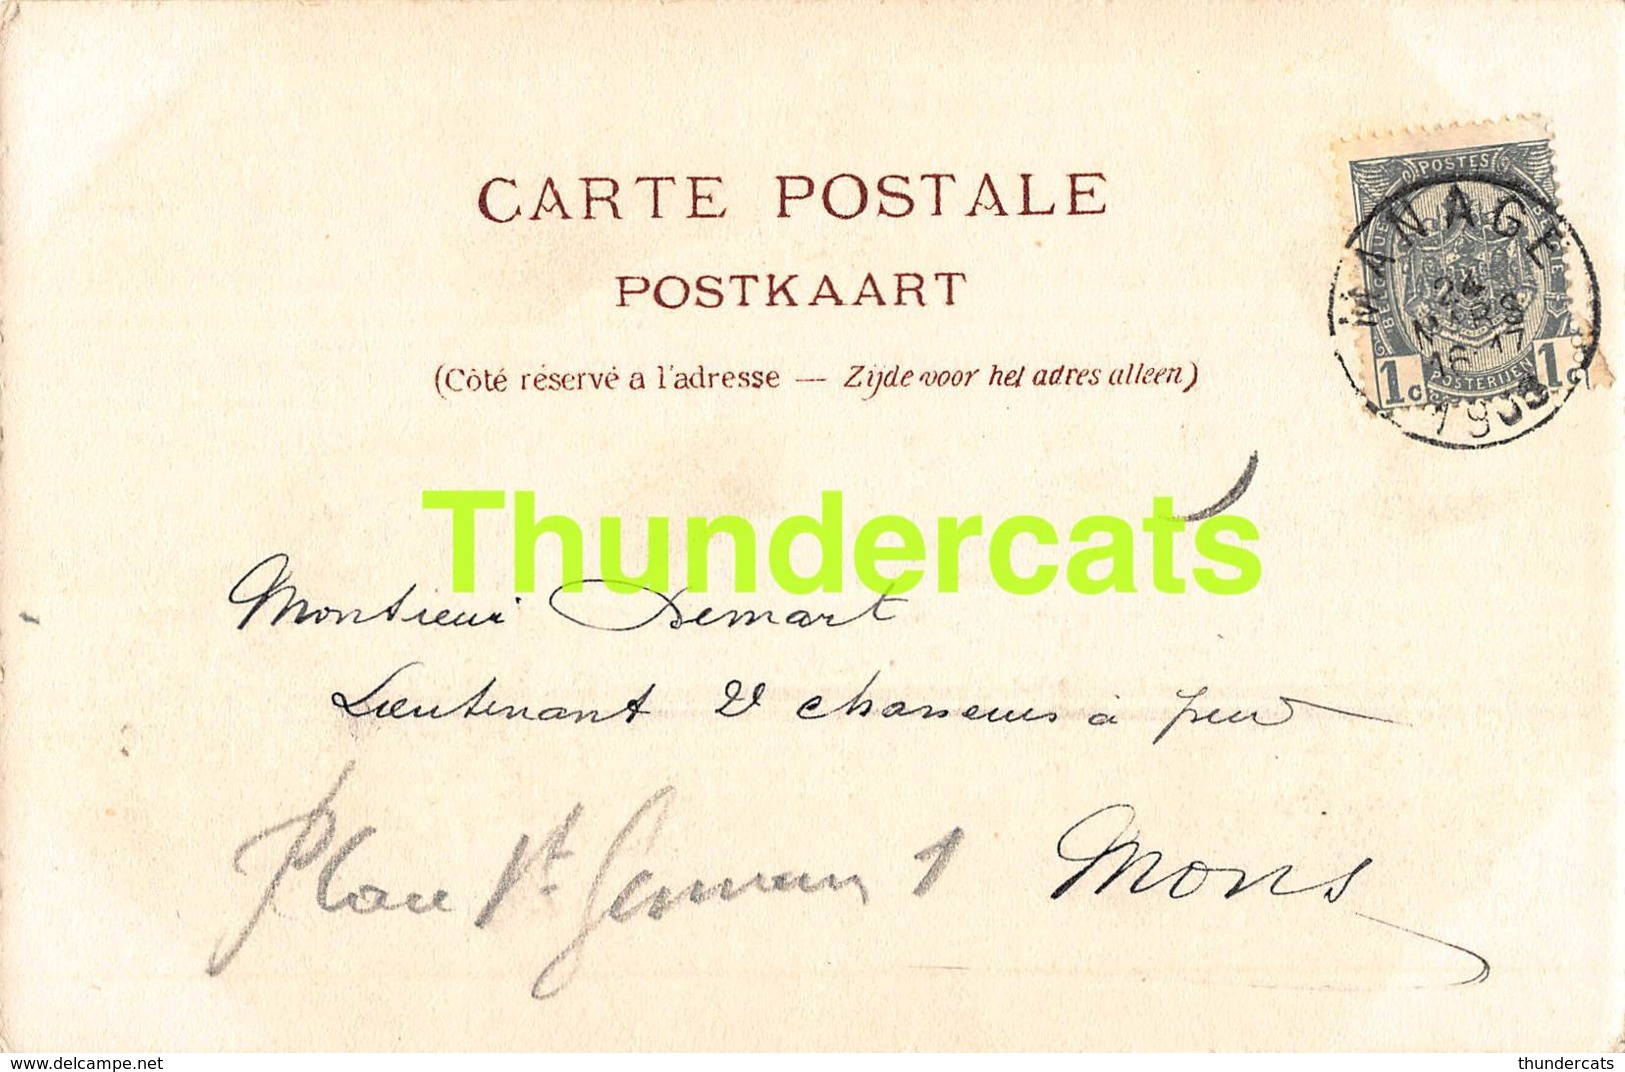 CARTE POSTALE
POSTKAART
(Côté réservé a l'adresse — Zijde voor het adres alleen)
POSTES
BELGIQUE BELGIE
1c 1c
POSTERIJEN
MANAGE
24
MARS
16-17
190
Thundercats
Monsieur Demart
Lieutenant 2e chasseurs à pied
Place St. Germain 1 Mons
www.delcampe.net
thundercats